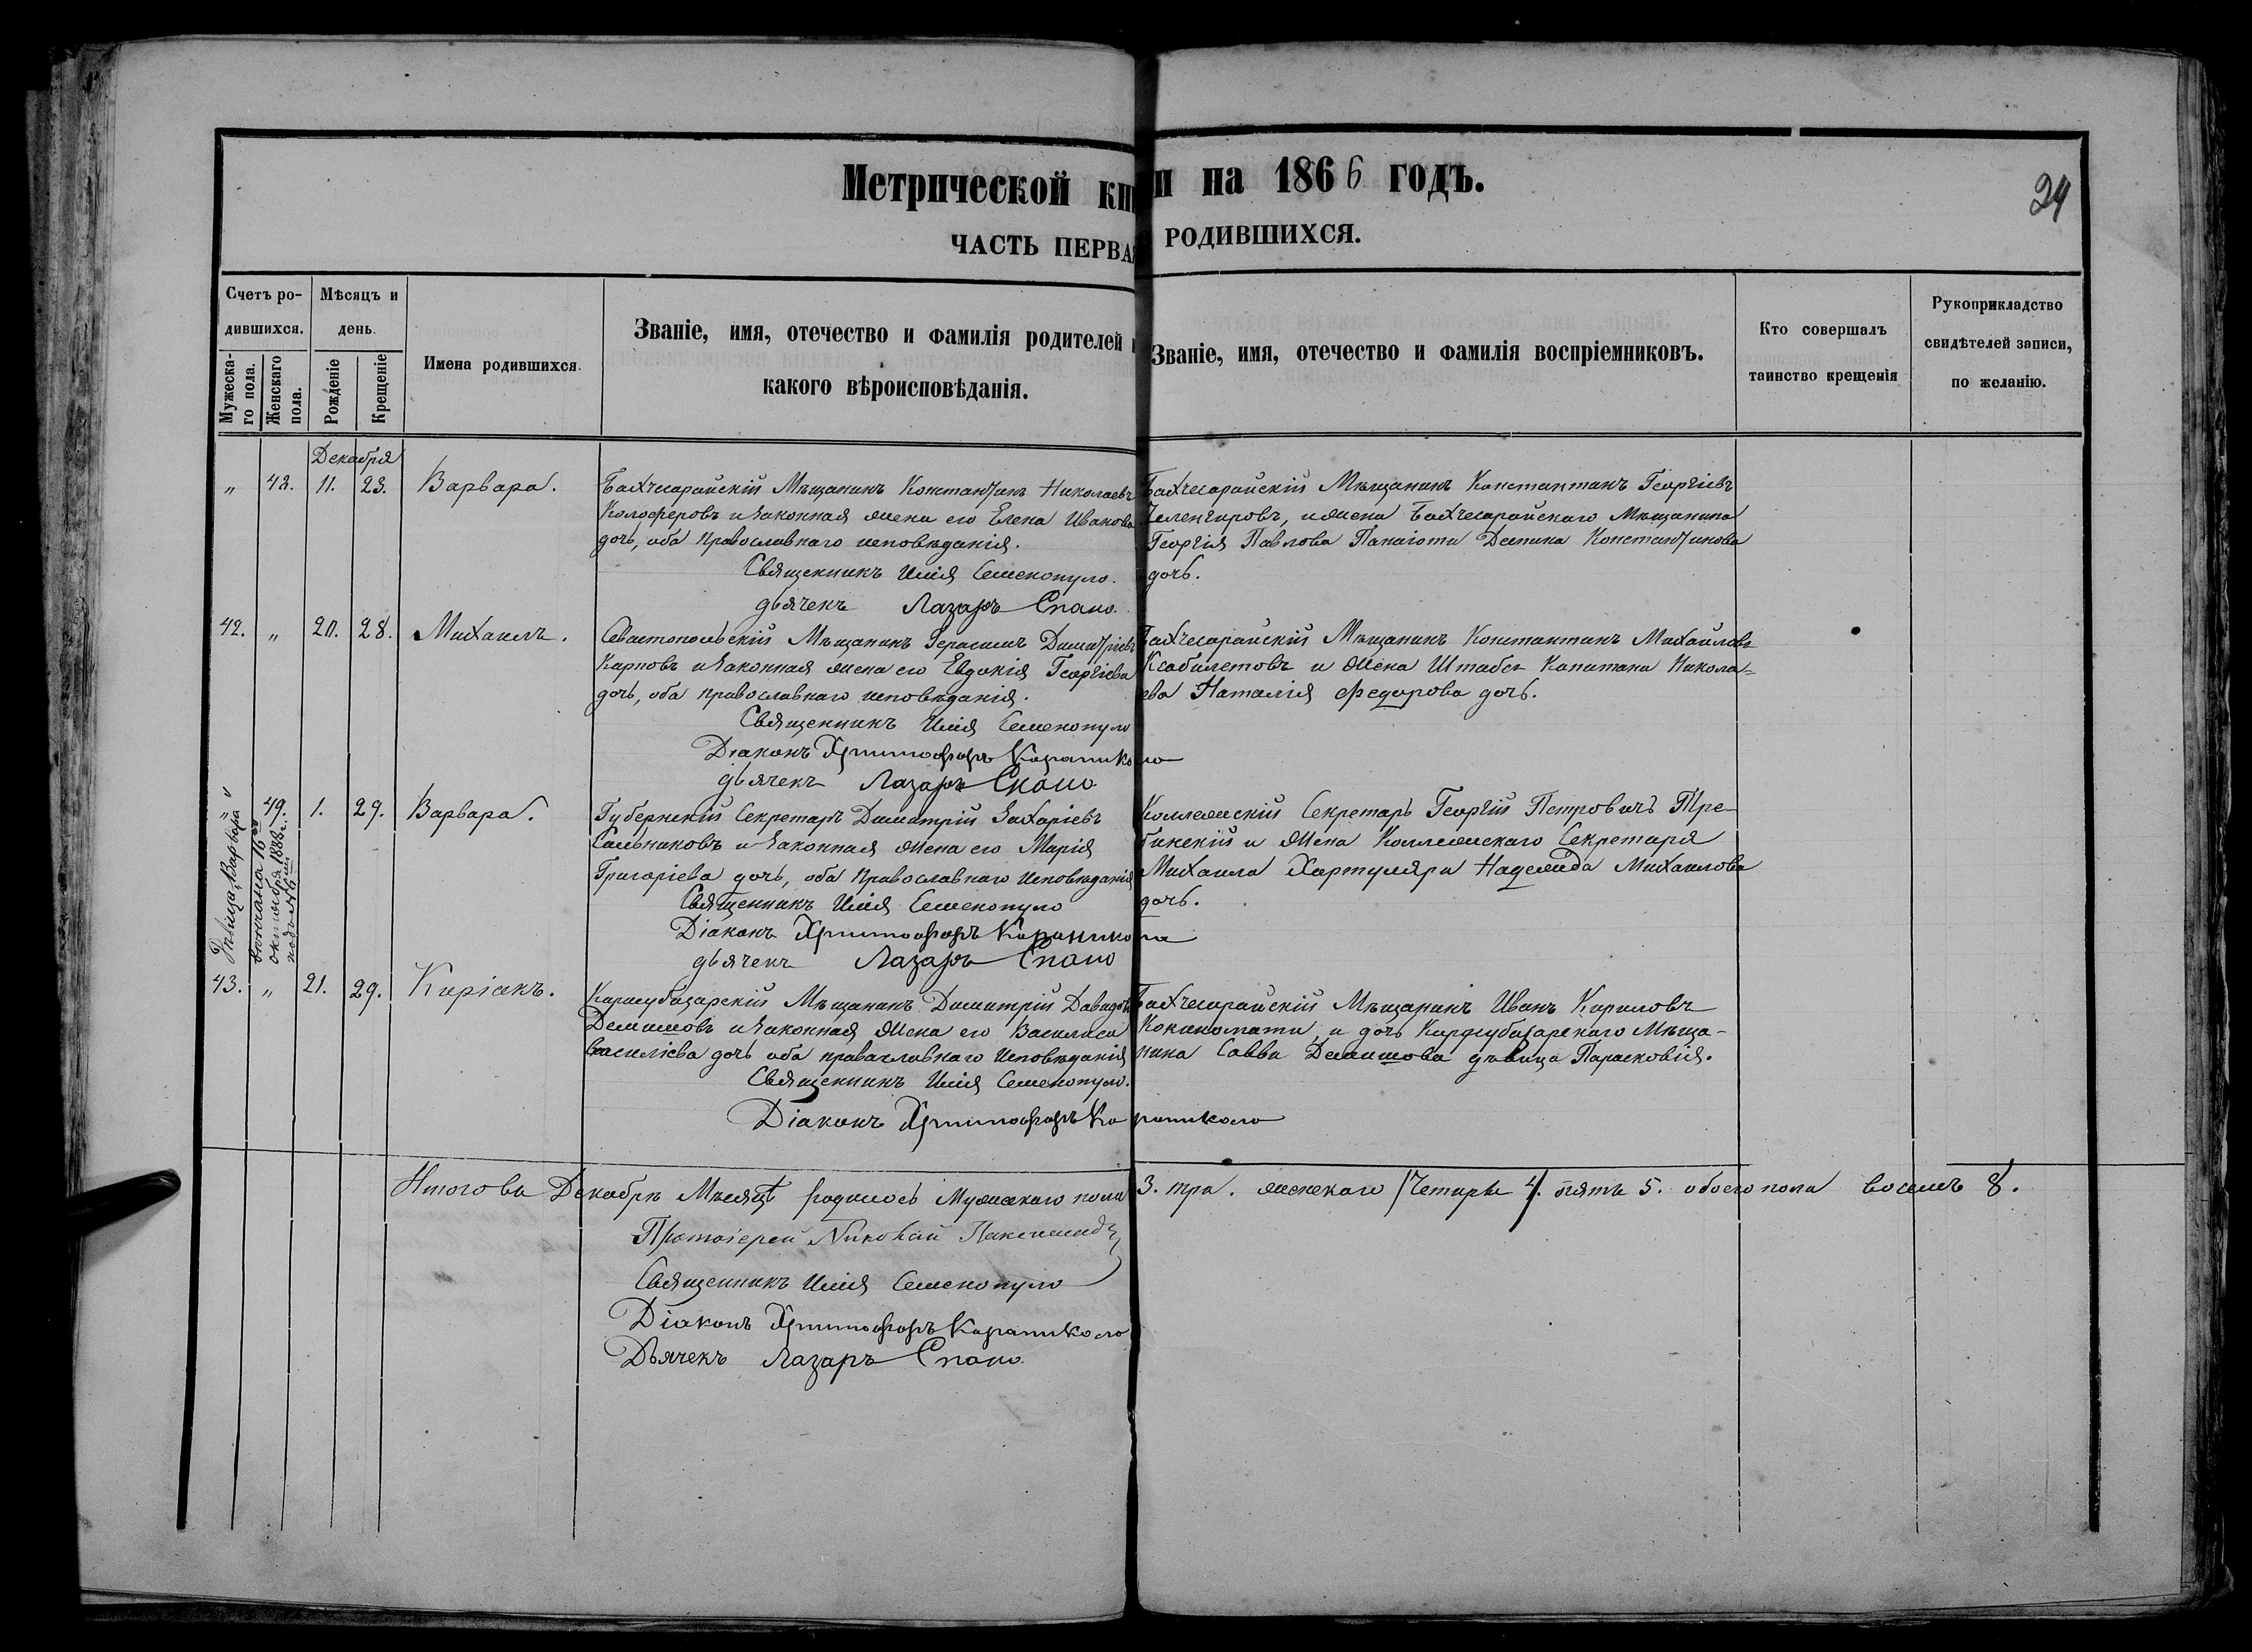 Метрической книги на 1866 годъ.
24
ЧАСТЬ ПЕРВАЯ РОДИВШИХСЯ.
Счетъ ро-
дившихся.
Мужеска-
го пола.
Женскаго
пола.
Мѣсяцъ и
день.
Рожденіе
Крещеніе
Имена родившихся.
Званіе, имя, отечество и фамилія родителей и
какого вѣроисповѣданія.
Званіе, имя, отечество и фамилія воспріемниковъ.
Кто совершалъ
таинство крещенія
Рукоприкладство
свидѣтелей записи,
по желанію.
Декабря
" 48. 11. 23. Варвара.
Бахчесарайскій Мѣщанинъ Константинъ Николаевъ
Колоферовъ и законная жена его Елена Иванова
дочь, оба Православнаго исповѣданія.
Священникъ Илія Семенопуло.
дьячекъ Лазаръ Спано.
Бахчесарайскій Мѣщанинъ Константинъ Георгіевъ
Челенгировъ, и жена Бахчесарайскаго Мѣщанина
Георгія Павлова Панаіоти Деспина Константинова
дочь.
42. " 20. 28. Михаилъ.
Севастопольскій Мѣщанинъ Герасимъ Димитріевъ
Карповъ и законная жена его Евдокія Георгіева
дочь, оба православнаго исповѣданія.
Священникъ Илія Семенопуло
Діаконъ Христофоръ Караниколо
дьячекъ Лазаръ Спано
Бахчесарайскій Мѣщанинъ Константинъ Михайловъ
Ксабилетовъ и жена Штабсъ Капитана Никола=
ева Наталія Федорова дочь.
" 49. 1. 29. Варвара.
Дѣвица Варвара
вѣнчана 16го
октября 1888г.
подъ № 6
Губернскій Секретарь Димитрій Захаріевъ
Сальниковъ и законная жена его Марія
Григоріева дочь, оба Православнаго Исповѣданія
Священникъ Илія Семенопуло
Діаконъ Христофоръ Караниколо
дьячекъ Лазаръ Спано
Коллежскій Секретарь Георгій Петровичъ Тре-
бинскій и жена Коллежскаго Секретаря
Михаила Хартуляри Надежда Михаилова
дочь.
43. " 21. 29. Киріакъ.
Карасубазарскій Мѣщанинъ Димитрій Давидовъ
Демишовъ и законная жена его Василиса
Василіева дочь оба православнаго Исповѣданія
Священникъ Илія Семенопуло.
Діаконъ Христофоръ Караниколо
Бахчесарайскій Мѣщанинъ Иванъ Кириловъ
Кокиномати и дочь Карасубазарскаго Мѣща-
нина Саввы Демишова дѣвица Парасковія.
Итого въ Декабрѣ Мѣсяцѣ родилось Мужескаго пола 3. три. женскаго /Четыре 4/. пять 5. обоего пола восемь 8.
Протоіерей Николай
Священникъ Илія Семенопуло
Діаконъ Христофоръ Караниколо
Дьячекъ Лазаръ Спано.